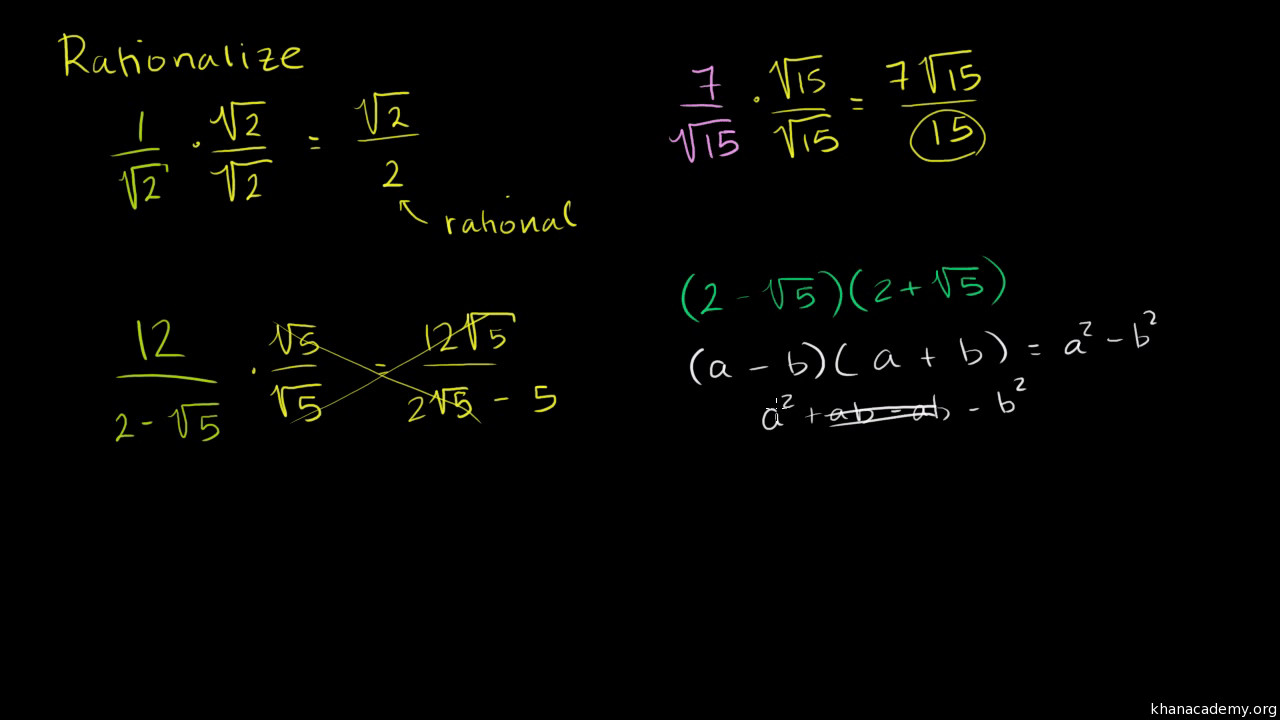 Rationalize
1/√2 · √2/√2 = √2/2
rational
7/√15 · √15/√15 = 7√15/15
12/(2-√5) · √5/√5 = 12√5/(2√5 - 5)
(2 - √5)(2 + √5)
(a - b)(a + b) = a² - b²
a² + ab - ab - b²
khanacademy.org